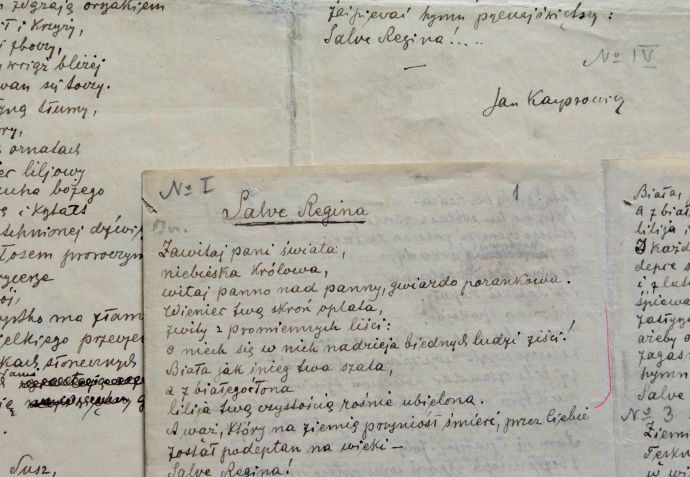 orszakiem
i krzyż,
wciąż bliżej
wan się toczy.
tłumy,
ry,
ornatach
ec liljowy
ucha bożego
łosem proroczym
ycerze
ój,
ystko ma złam
ielkiego
kach słonecznych
Susz,
Zaśpiewać hymn przenajświętszy:
Salve Regina!....
No IV
Jan Kasprowicz
No I
1
Salve Regina
Zawitaj pani świata,
niebieska królowa,
witaj panno nad panny, gwiazdo porankowa.
Wieniec twą skroń oplata,
zwity z promiennych liści:
o niech się w nich nadzieja biednych ludzi ziści!
Biała jak śnieg twa szata,
a z białego łona
lilija twą czystością rośnie ubielona.
A wąż, który na ziemię przyniósł śmierć, przez Ciebie
został podeptan na wieki —
Salve Regina!
Biała,
a z biał
lilija i
I każd
depce s
śpiewa
ażeby o
zagasn
hymn
Salve
No 3
Ziemi
Tęskn
w wi